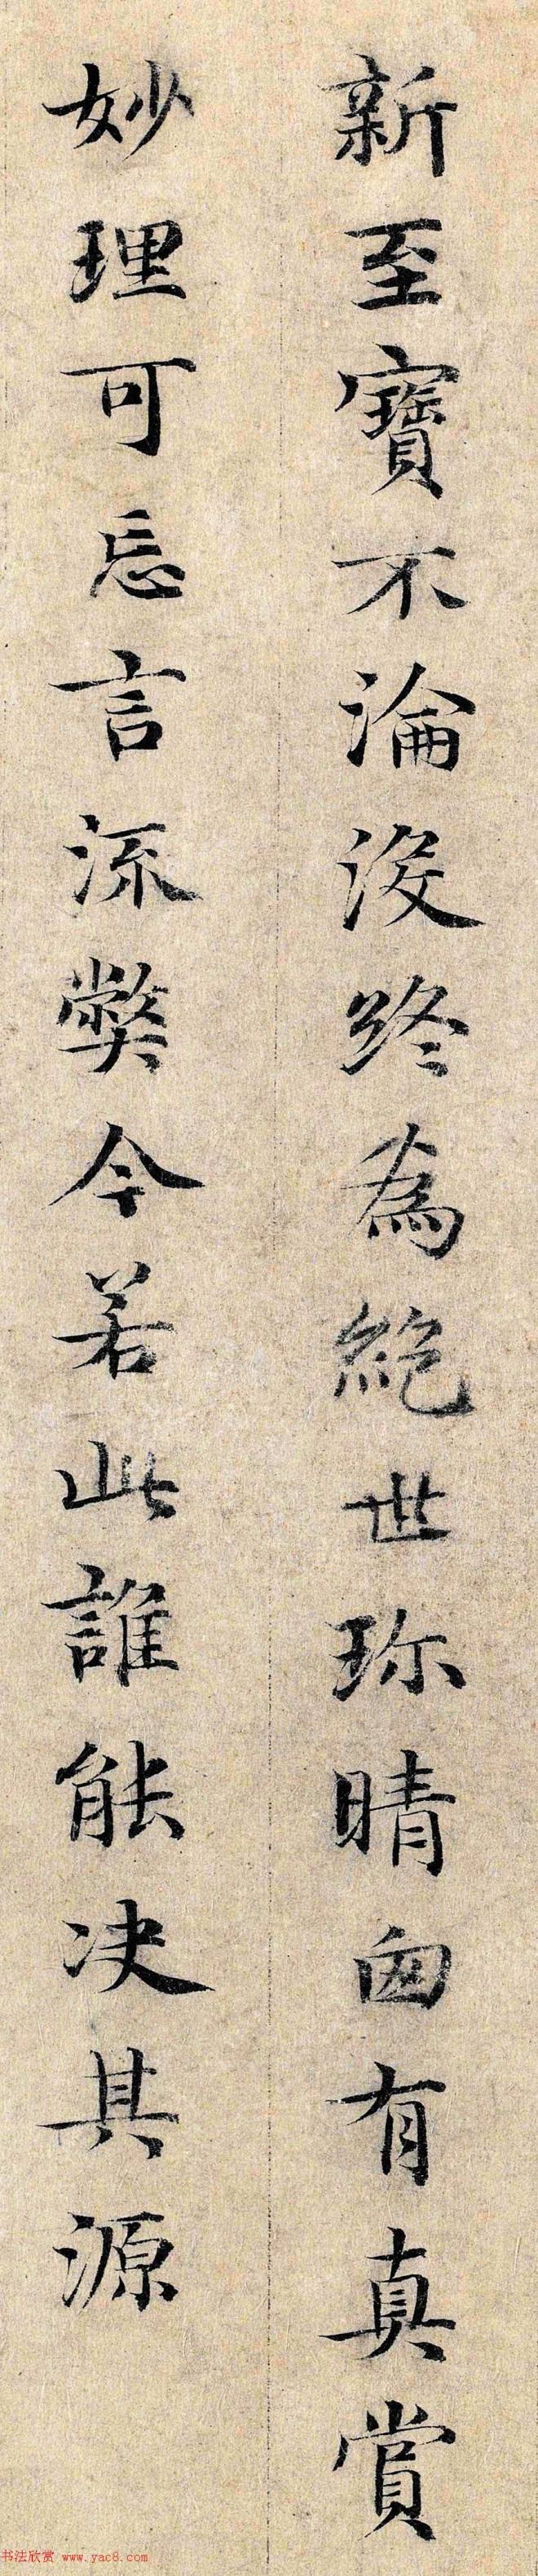 新至寶不淪没終為絶世珎晴囱有真賞
妙理可忘言流弊今若此誰能决其源
书法欣赏 www.yac8.com